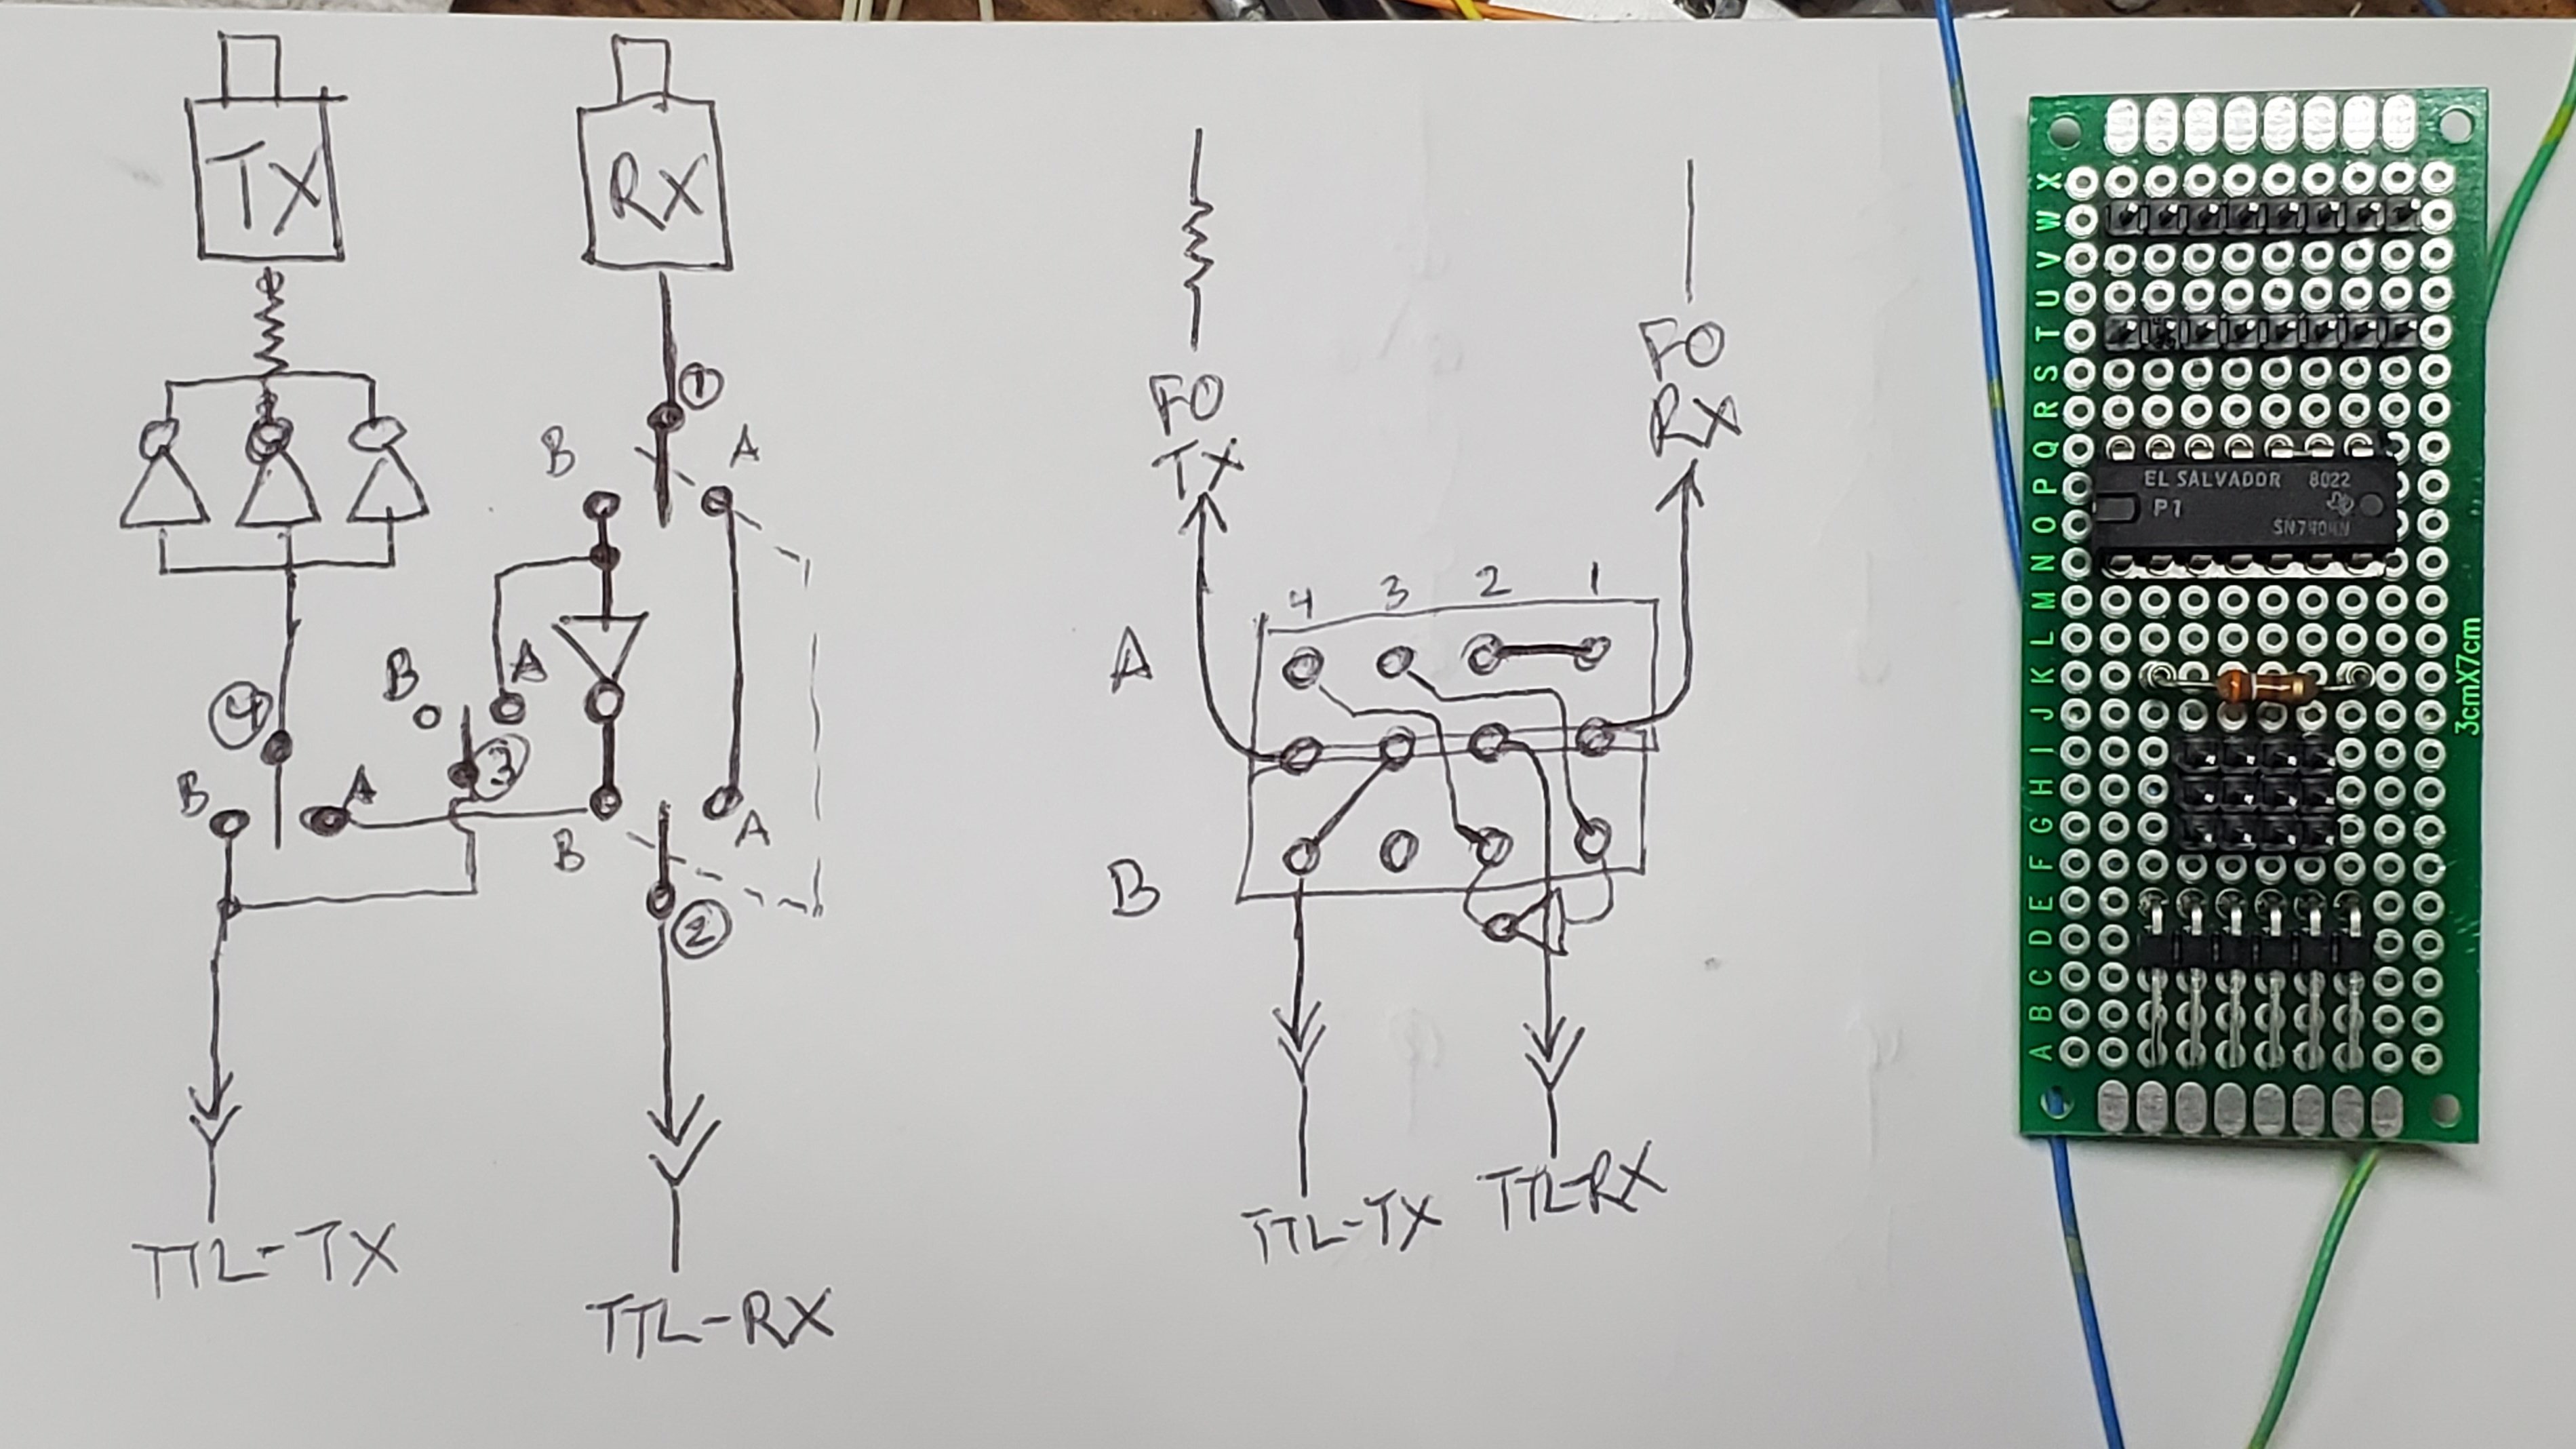 TX
RX
①
B
A
B
A
④
③
B
A
B
A
②
TTL-TX
TTL-RX
FO
TX
FO
RX
4 3 2 1
A
B
TTL-TX
TTL-RX
X
W
V
U
T
S
R
Q
P
O
N
M
L
K
J
I
H
G
F
E
D
C
B
A
EL SALVADOR 8022
P1
SN7404N
3cmX7cm